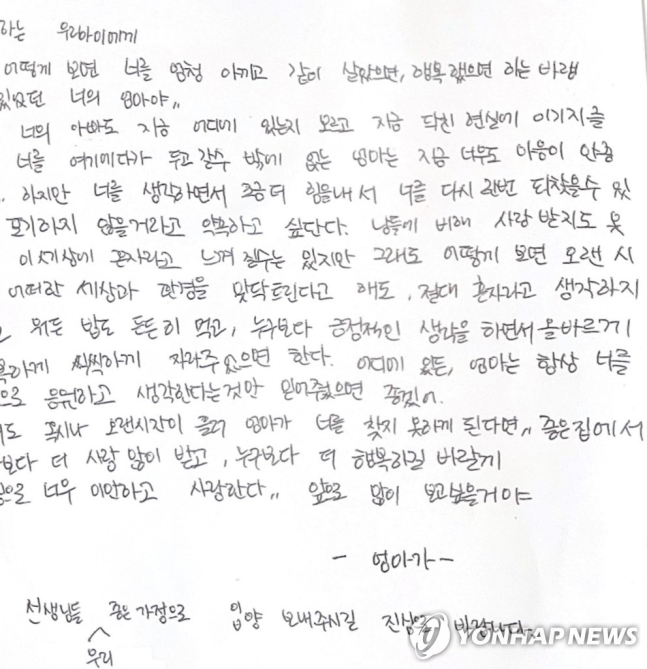 하는 우리아이에게
어떻게 보면 너를 엄청 아끼고 같이 살았으면, 행복했으면 하는 바램
있었던 너의 엄마야,,
너의 아빠도 지금 어디에 있는지 모르고 지금 닥친 현실에 이기지를
너를 여기에다가 두고 갈수 밖에 없는 엄마는 지금 너무도 마음이 안좋
. 하지만 너를 생각하면서 조금 더 힘을내서 너를 다시 한번 되찾을수 있
포기하지 않을거라고 약속하고 싶단다. 남들에 비해 사랑 받지도 못
이 세상에 혼자라고 느껴 질수는 있지만 그래도 어떻게 보면 오랜 시
어떠한 세상과 환경을 맞닥트린다고 해도, 절대 혼자라고 생각하지
고 뭐든 밥도 든든히 먹고, 누구보다 긍정적인 생각을 하면서 올바르게
하게 씩씩하게 자라주었으면 한다. 어디에 있든, 엄마는 항상 너를
으로 응원하고 생각한다는것만 믿어줬으면 좋겠어.
도 혹시나 오랜시간이 흘러 엄마가 너를 찾지 못하게 된다면,, 좋은집에서
보다 더 사랑 많이 받고, 누구보다 더 행복하길 바랄게
으로 너무 미안하고 사랑한다,, 앞으로 많이 보고싶을거야
- 엄마가 -
선생님들 좋은 가정으로 입양 보내주시길 진심으로 바랍니다.
우리
YONHAP NEWS